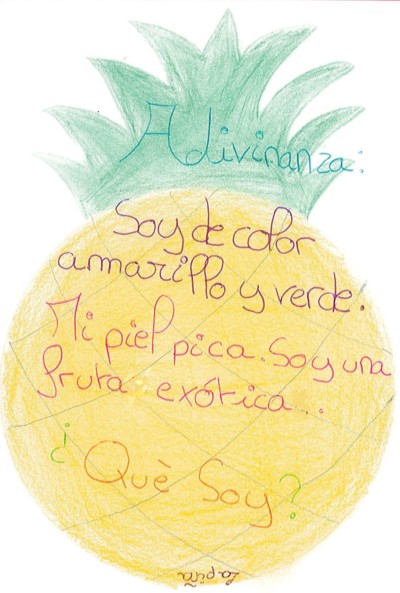 Adivinanza:
Soy de color
amarillo y verde.
Mi piel pica. Soy una
fruta exótica...
¿Què Soy?
La piña